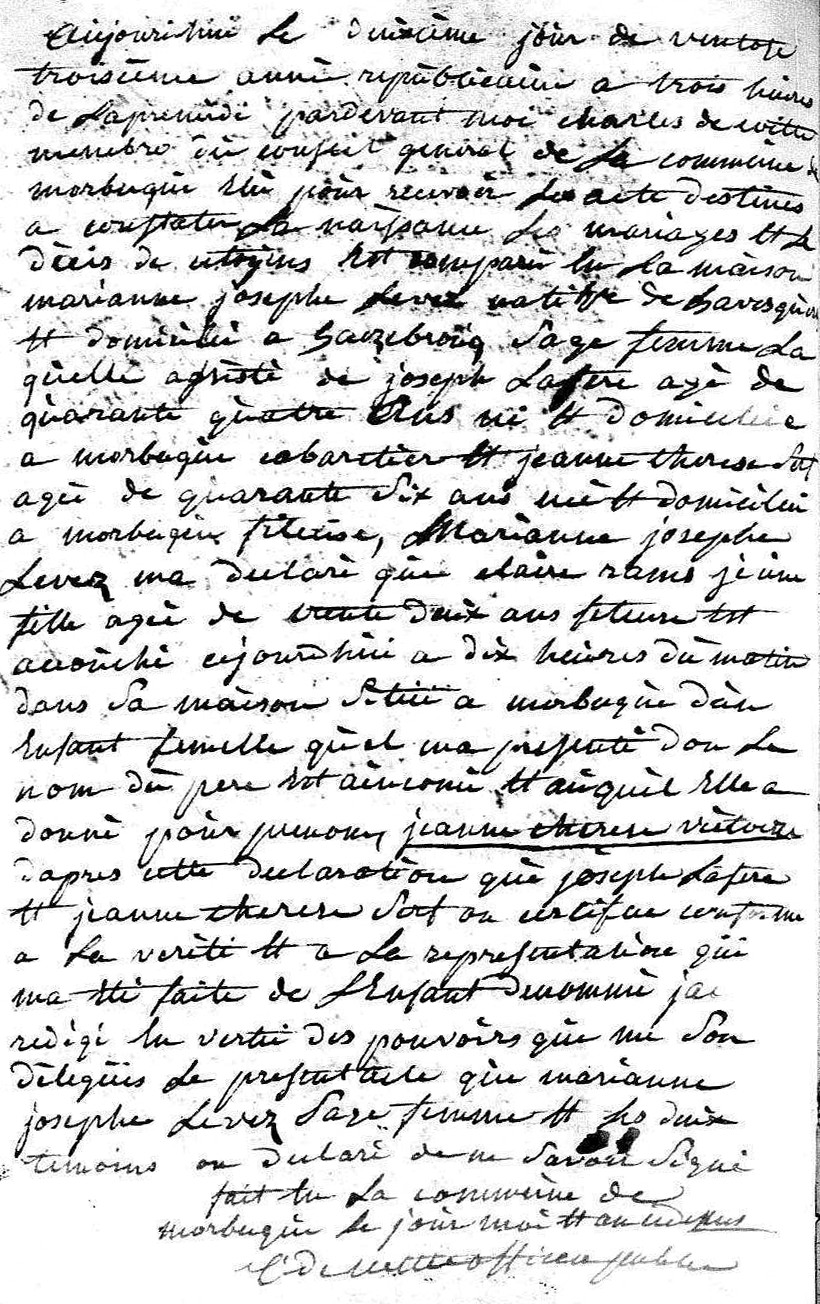 aujourdhui le deuxième jour de ventose
troisieme anné républicaine a trois heures
de Lapremidi pardevant moi charles de witte
membre du conseil general de la commune de
morbeque élu pour recevoir les acte destines
a constater La naissance les mariages et le
décis de citoyins Est comparu En la maison
marianne josephe Levez natitve de
et domicilié a hazebroucq Sage femme La
quelle assisté de joseph Lafere agé de
quarante quatre Ans né et domiciliée
a morbeque cabaretier et jeanne therese
ageé de quarante Six ans neé et domiciliéé
a morbeque fileuse, Marianne josephe
Levez ma declaré que claire rams jeune
fille ageé de trente deux ans fileuse Est
accouché cejourdhui a dix heures du matin
dans Sa maison Situé a morbeque dun
Enfant femelle quel ma presenté don Le
nom du pere Est inconu et auquel Elle a
donné pour prenom, jeanne therese victoire
dapres cette declaration que joseph Lafere
et jeanne therese on certifue conforme
a La verité et a La representation qui
ma été faite de LEnfant denommé jai
redigé En vertu des pouvoirs que me Son
délegués Le present acte que marianne
josephe Levez Sage femme et Ses deux
temoins on declaré de ne Savoir Signé
fait En La commune de
morbeque le jour moi et an cidessus
C de witte officier public